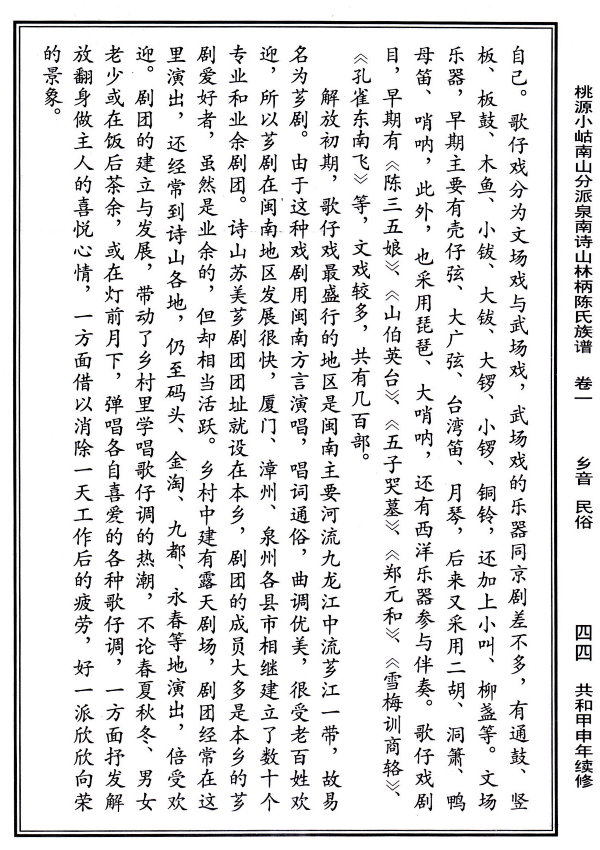 桃源小岵南山分派泉南诗山林柄陈氏族谱 卷一 乡音 民俗 四四 共和甲申年续修
自己。歌仔戏分为文场戏与武场戏，武场戏的乐器同京剧差不多，有通鼓、竖
板、板鼓、木鱼、小钹、大钹、大锣、小锣、铜铃，还加上小叫、柳盏等。文场
乐器，早期主要有壳仔弦、大广弦、台湾笛、月琴，后来又采用二胡、洞箫、鸭
母笛、哨呐，此外，也采用琵琶、大哨呐，还有西洋乐器参与伴奏。歌仔戏剧
目，早期有《陈三五娘》、《山伯英台》、《五子哭墓》、《郑元和》、《雪梅训商辂》、
《孔雀东南飞》等，文戏较多，共有几百部。
解放初期，歌仔戏最盛行的地区是闽南主要河流九龙江中流芗江一带，故易
名为芗剧。由于这种戏剧用闽南方言演唱，唱词通俗，曲调优美，很受老百姓欢
迎，所以芗剧在闽南地区发展很快，厦门、漳州、泉州各县市相继建立了数十个
专业和业余剧团。诗山苏美芗剧团团址就设在本乡，剧团的成员大多是本乡的芗
剧爱好者，虽然是业余的，但却相当活跃。乡村中建有露天剧场，剧团经常在这
里演出，还经常到诗山各地，仍至码头、金淘、九都、永春等地演出，倍受欢
迎。剧团的建立与发展，带动了乡村里学唱歌仔调的热潮，不论春夏秋冬、男女
老少或在饭后茶余，或在灯前月下，弹唱各自喜爱的各种歌仔调，一方面抒发解
放翻身做主人的喜悦心情，一方面借以消除一天工作后的疲劳，好一派欣欣向荣
的景象。